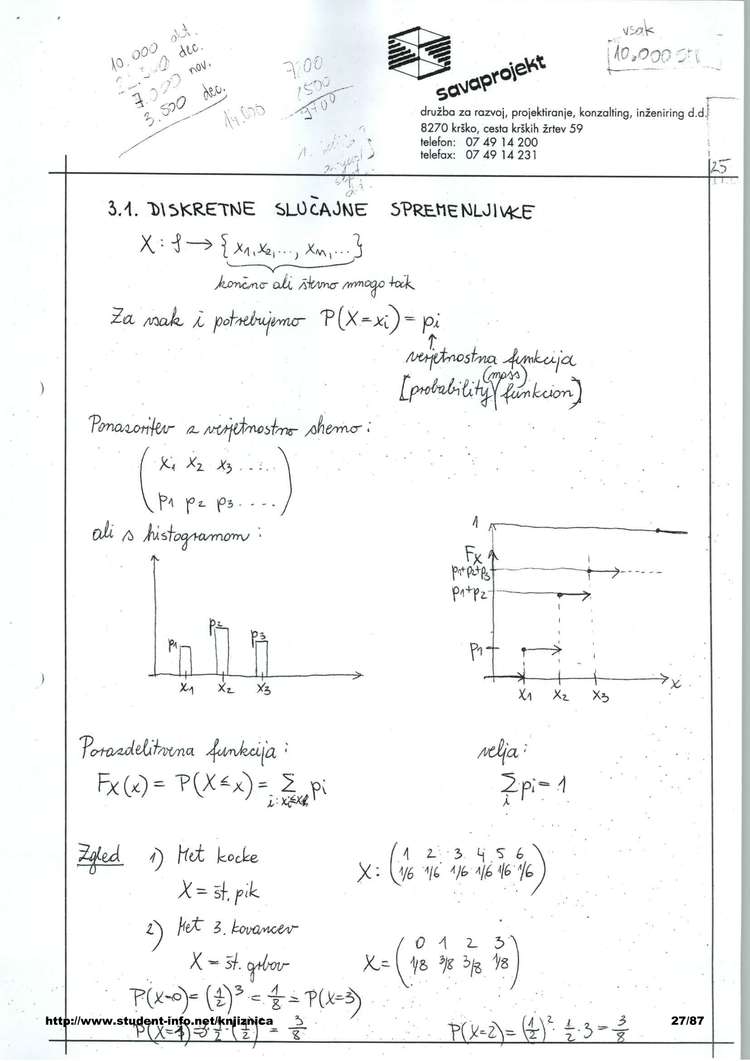 10.000 okt.
dec.
7.000 nov.
3.500 dec.
14.000
7200
2500
9700
vsak
10,000 SIT
savaprojekt
družba za razvoj, projektiranje, konzalting, inženiring d.d.
8270 krško, cesta krških žrtev 59
telefon: 07 49 14 200
telefax: 07 49 14 231
25
3.1. DISKRETNE SLUČAJNE SPREMENLJIVKE
X : f → { x1, x2, ..., xn, ... }
končno ali števno mnogo točk
Za vsak i potrebujemo P(X=xi) = pi
↑
verjetnostna funkcija
(mass)
[probability funkcion]
Ponazoritev z verjetnostno shemo :
( x1 x2 x3 ..... )
( p1 p2 p3 ..... )
ali s histogramom :
p1 p2 p3
x1 x2 x3
1
Fx
p1+p2+p3
p1+p2
p1
x1 x2 x3 x
Porazdelitvena funkcija :
velja :
Fx(x) = P(X ≤ x) = Σ pi
Σ pi = 1
i
Zgled 1) Met kocke
X = št. pik
X : ( 1 2 3 4 5 6 )
( 1/6 1/6 1/6 1/6 1/6 1/6 )
2) Met 3. kovancev
X = št. grbov
X = ( 0 1 2 3 )
( 1/8 3/8 3/8 1/8 )
P(X=0) = (1/2)³ = 1/8 = P(X=3)
http://www.student-info.net/knjiznica
27/87
P(X=2) = (1/2)² · 1/2 · 3 = 3/8